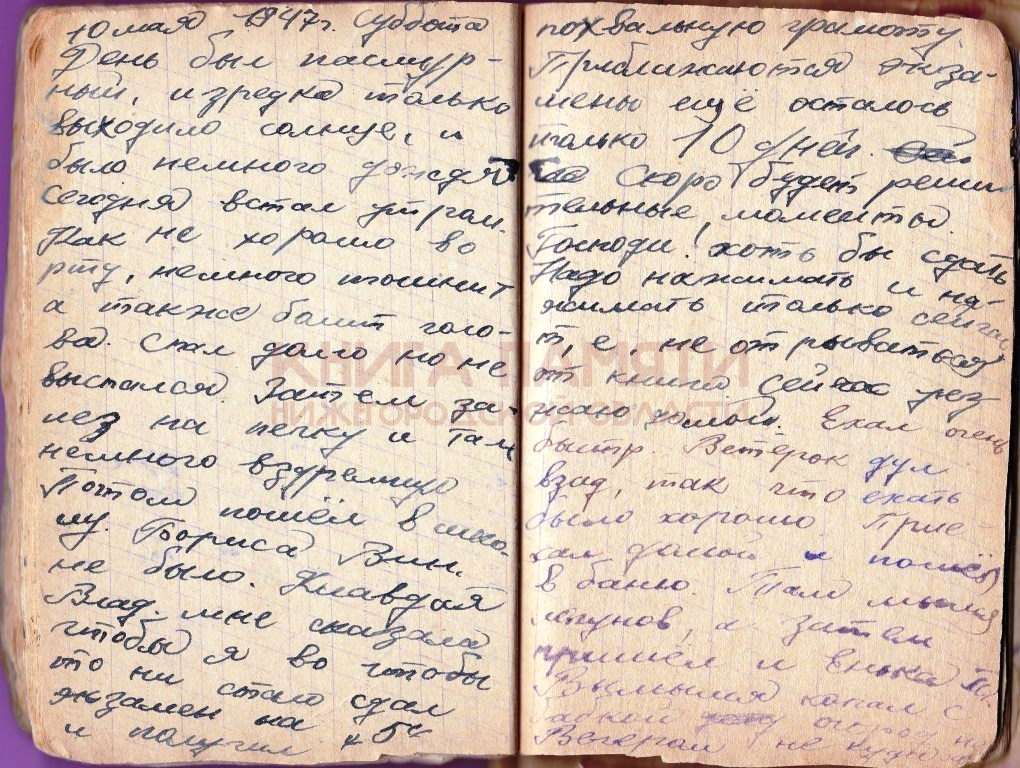 10 мая 1947г. Суббота
День был пасмур-
ный, изредка только
выходило солнце, и
было немного дождя
Сегодня встал утром.
Как не хорошо во
рту, немного тошнит
а также болит голо-
ва. Спал долго но не
выспался. Затем за-
лез на печку и там
немного вздремнул
Потом пошёл в шко-
лу. Бориса Вин.
не было. Клавдия
Влад. мне сказала
чтобы я во чтобы
то ни стало сдал
экзамен на "5"
и получил
похвальную грамоту.
Приближаются экза-
мены ещё осталось
только 10 дней.
Скоро будет реши
тельные моменты.
Господи! хоть бы сдать
Надо нажимать и на-
жимать только сейчас
т, е, не отрываться
от книги. Сейчас уез
жаю домой. Ехал очень
быстр. Ветерок дул
взад, так что ехать
было хорошо Прие-
хал домой и пошёл
в баню. Там мылся
а затем
пришёл и Енька
Вымылся копали с
бабкой огород
Вечером не
КНИГА ПАМЯТИ
НИЖЕГОРОДСКОЙ ОБЛАСТИ